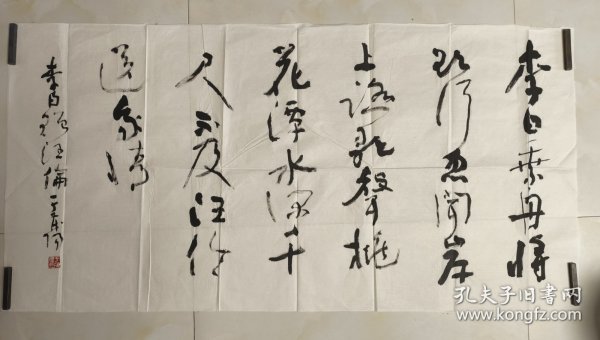 李白乘舟將
欲行忽聞岸
上踏歌聲桃
花潭水深千
尺不及汪倫
送我情
李白贈汪倫
孔夫子旧书网
www.kongfz.com